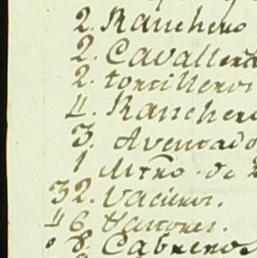 2. Ranchero
2. Cavaller
2. tortilleros
4. Ranchero
3. Aventado
1 Mtro. de
32. Vacieros.
46
8. Cabrero